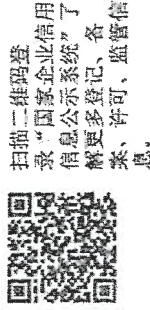 扫描二维码登
录“国家企业信用
信息公示系统”了
解更多登记、备
案、许可、监管信
息。